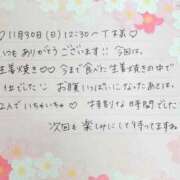 ♡11月30日(日)12:30〜Tさま♡
いつもありがとうございます!! 今回は、
生姜焼き♡ 今まで食べた生姜焼きの中で
1番でした お腹いっぱいになったあとは、
2人でいちゃいちゃ♡ 特別な時間でした
次回も楽しみにして待ってますね